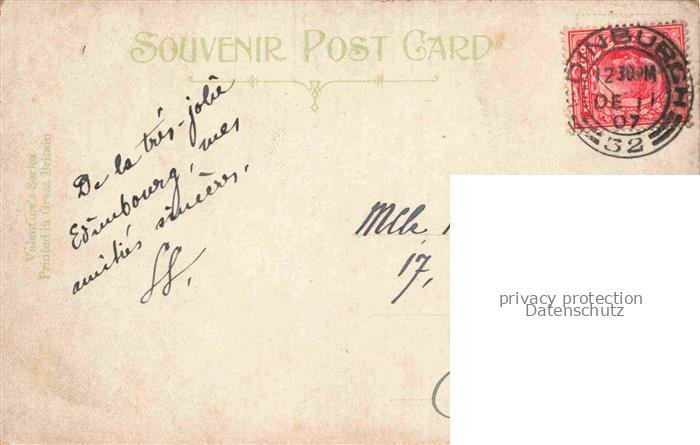 SOUVENIR POST CARD
EDINBURGH
12 30PM
DE 11
07
32
De la très-jolie
Edimbourg, mes
amitiés sincères.
Valentine's Series
Printed in Great Britain
Mlle
17,
privacy protection
Datenschutz